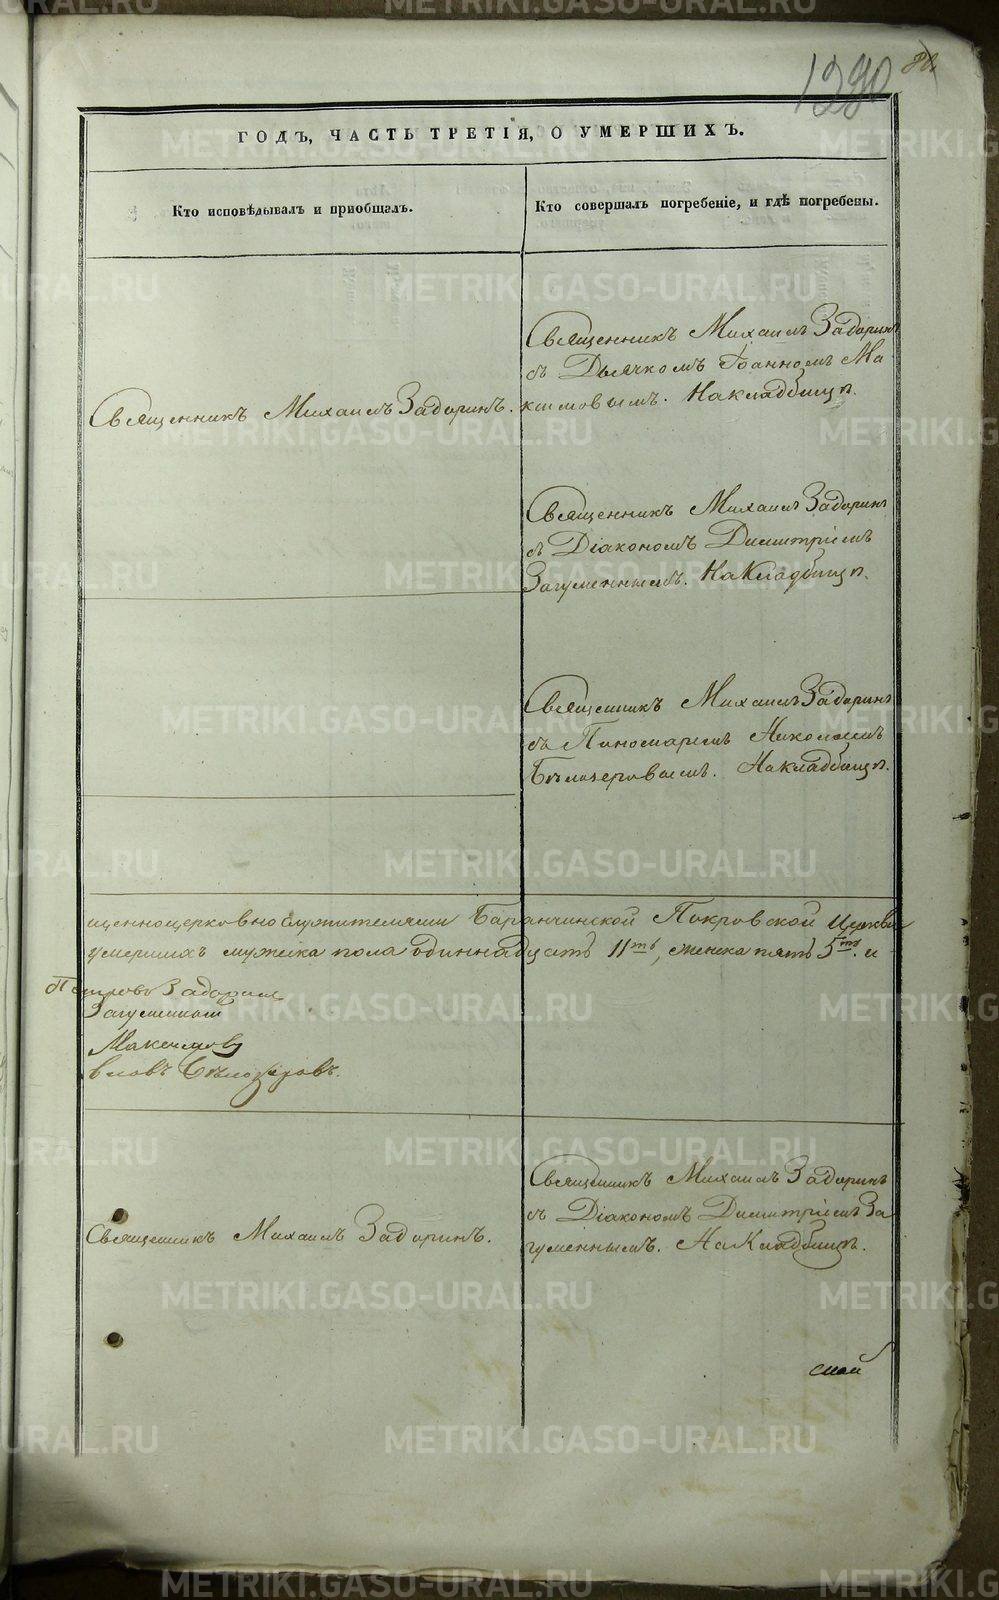 1290
ГОДЪ, ЧАСТЬ ТРЕТІЯ, О УМЕРШИХЪ.
Кто исповѣдывалъ и приобщалъ.
Кто совершалъ погребеніе, и гдѣ погребены.
Священникъ Михаилъ Задоринъ
съ Дьячкомъ Іоанномъ Ма
Священникъ Михаилъ Задоринъ.
ксимовымъ. На кладбищѣ.
Священникъ Михаилъ Задоринъ
съ Діакономъ Димитріемъ
Загуменнымъ. На Кладбищѣ.
Священникъ Михаилъ Задоринъ
съ Пономаремъ Николаемъ
Бѣлозеровымъ. На кладбищѣ.
щенноцерковнослужителями Баранчинской Покровской Церкви
умершихъ мужеска пола одиннадцать 11ть, женска пять 5ть. и
Петровъ Задоринъ
Загуменной
Максимовъ
Бѣлозеровъ.
Священникъ Михаилъ Задоринъ
съ Діакономъ Димитріемъ За
Священникъ Михаилъ Задоринъ.
гуменнымъ. На Кладбищѣ.
METRIKI.GASO-URAL.RU